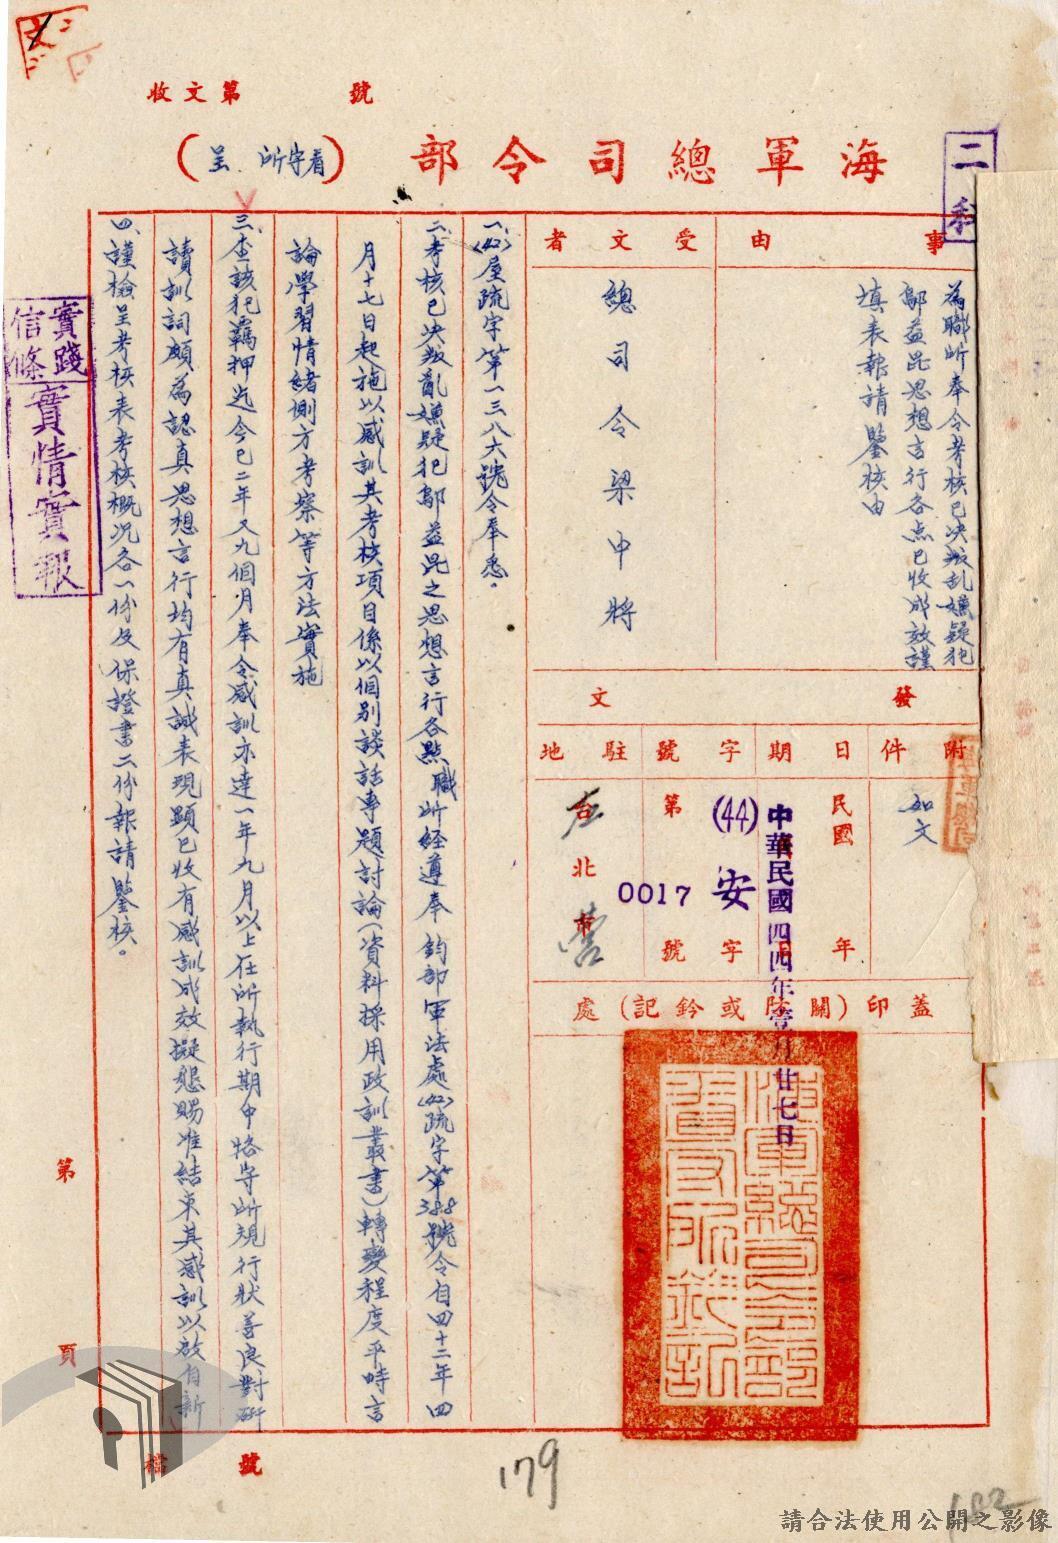 收文第　　　號
海軍總司令部（看守所　呈）
二科
事由
為職所奉令考核已決叛乱嫌疑犯
鄔益昆思想言行各点已收成效謹
填表報請鑒核由
受文者
總司令梁中將
發文
附件
如文
日期
民國　年　月　日
中華民國四四年壹月廿七日
字號
(44)安字
第0017號
駐地
台北市
左營
蓋印（關防或鈐記）處
海軍總司令部看守所鈐記
一、(42)屋疏字第一三八六號令奉悉。
二、考核已決叛亂嫌疑犯鄔益昆之思想言行各點職所經遵奉　鈞部軍法處(42)疏字第388號令自四十二年四
月十七日起施以感訓其考核項目係以個別談話專題討論（資料採用政訓叢書）轉變程度平時言
論學習情緒側方考察等方法實施
三、查該犯羈押迄今已二年又九個月奉令感訓亦達一年九月以上在所執行期中恪守所規行狀善良對研
讀訓詞頗為認真思想言行均有真誠表現顯已收有感訓成效擬懇賜准結束其感訓以啟自新
四、謹檢呈考核表考核概況各一份及保證書二份報請鑒核。
實踐
信條
實情實報
第　　　頁
檔號
179
182
請合法使用公開之影像